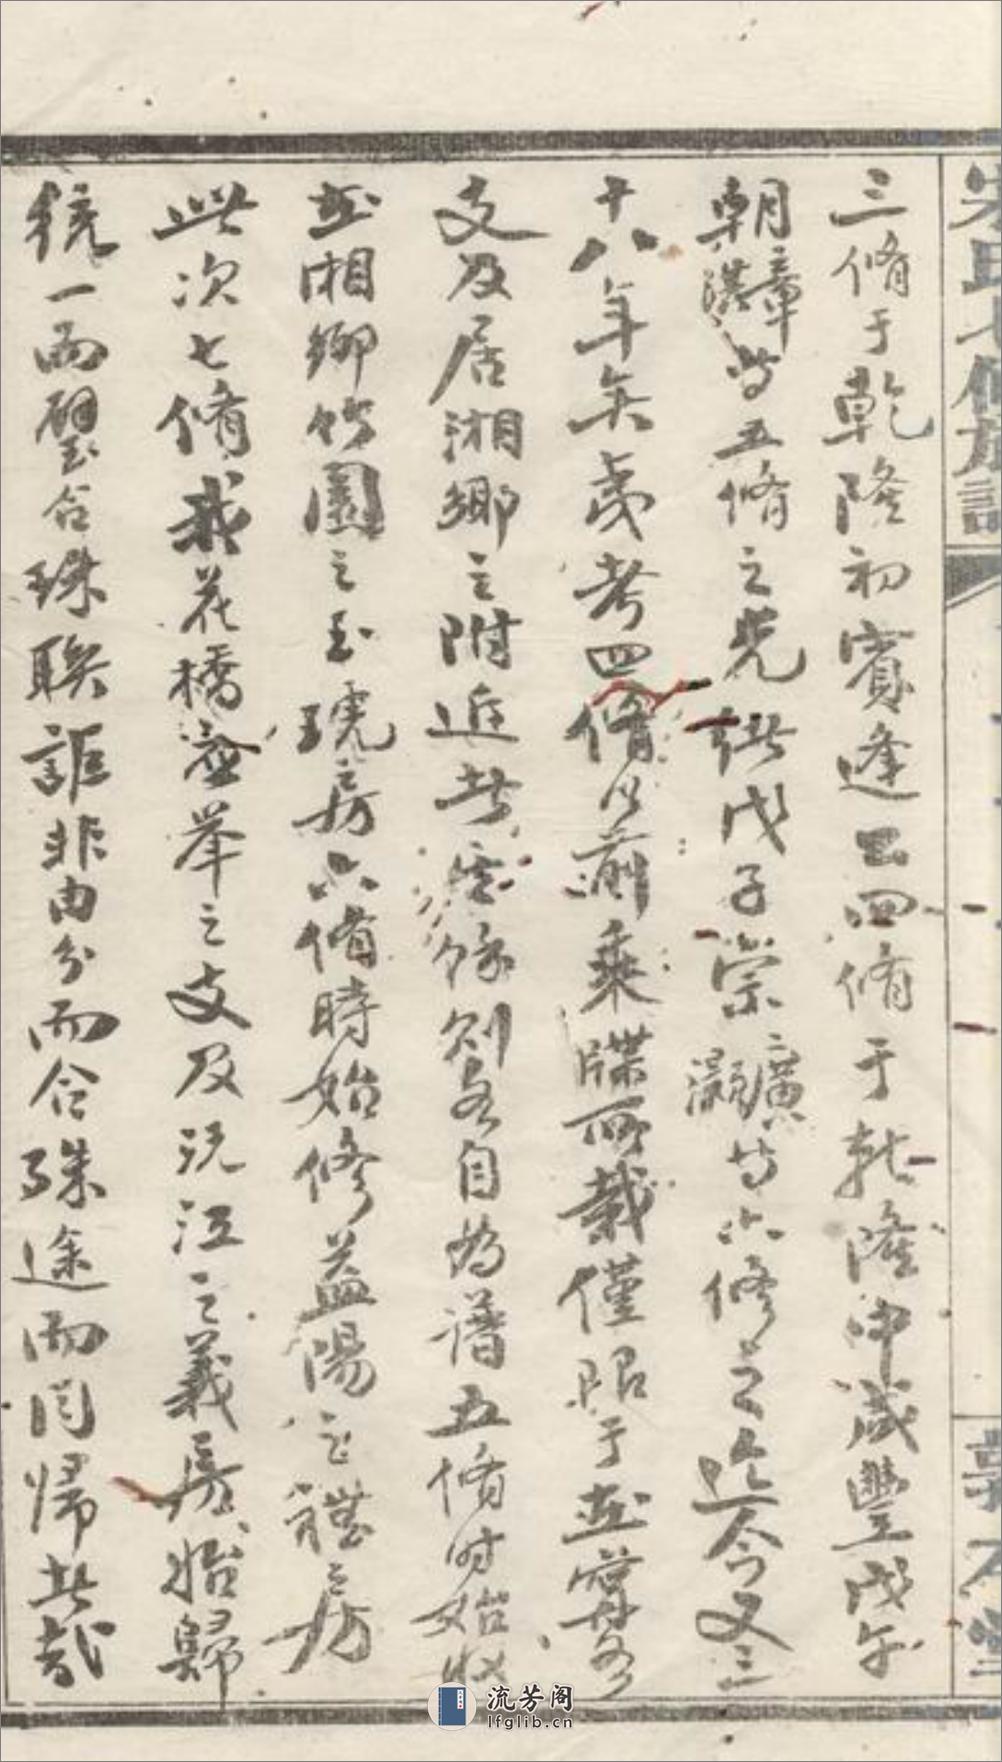 宋氏七修族譜
敦本堂
三脩于乾隆初賓逢工四脩于乾隆中咸豐戊午
朝璋漢等五脩之光緒戊子崇廣灝等六修之迄今又三
十八年矣考四脩以前乘牒所載僅限于並
支及居湘鄉之附近者餘則各自為譜五脩時始收
並湘鄉竹園之玉琥房六脩時始修益陽之禮房
此次七脩我花橋舉之支及沅江之義房始歸
統一而璧合珠聯詎非由分而合殊途而同歸者哉
流芳阁
lfglib.cn